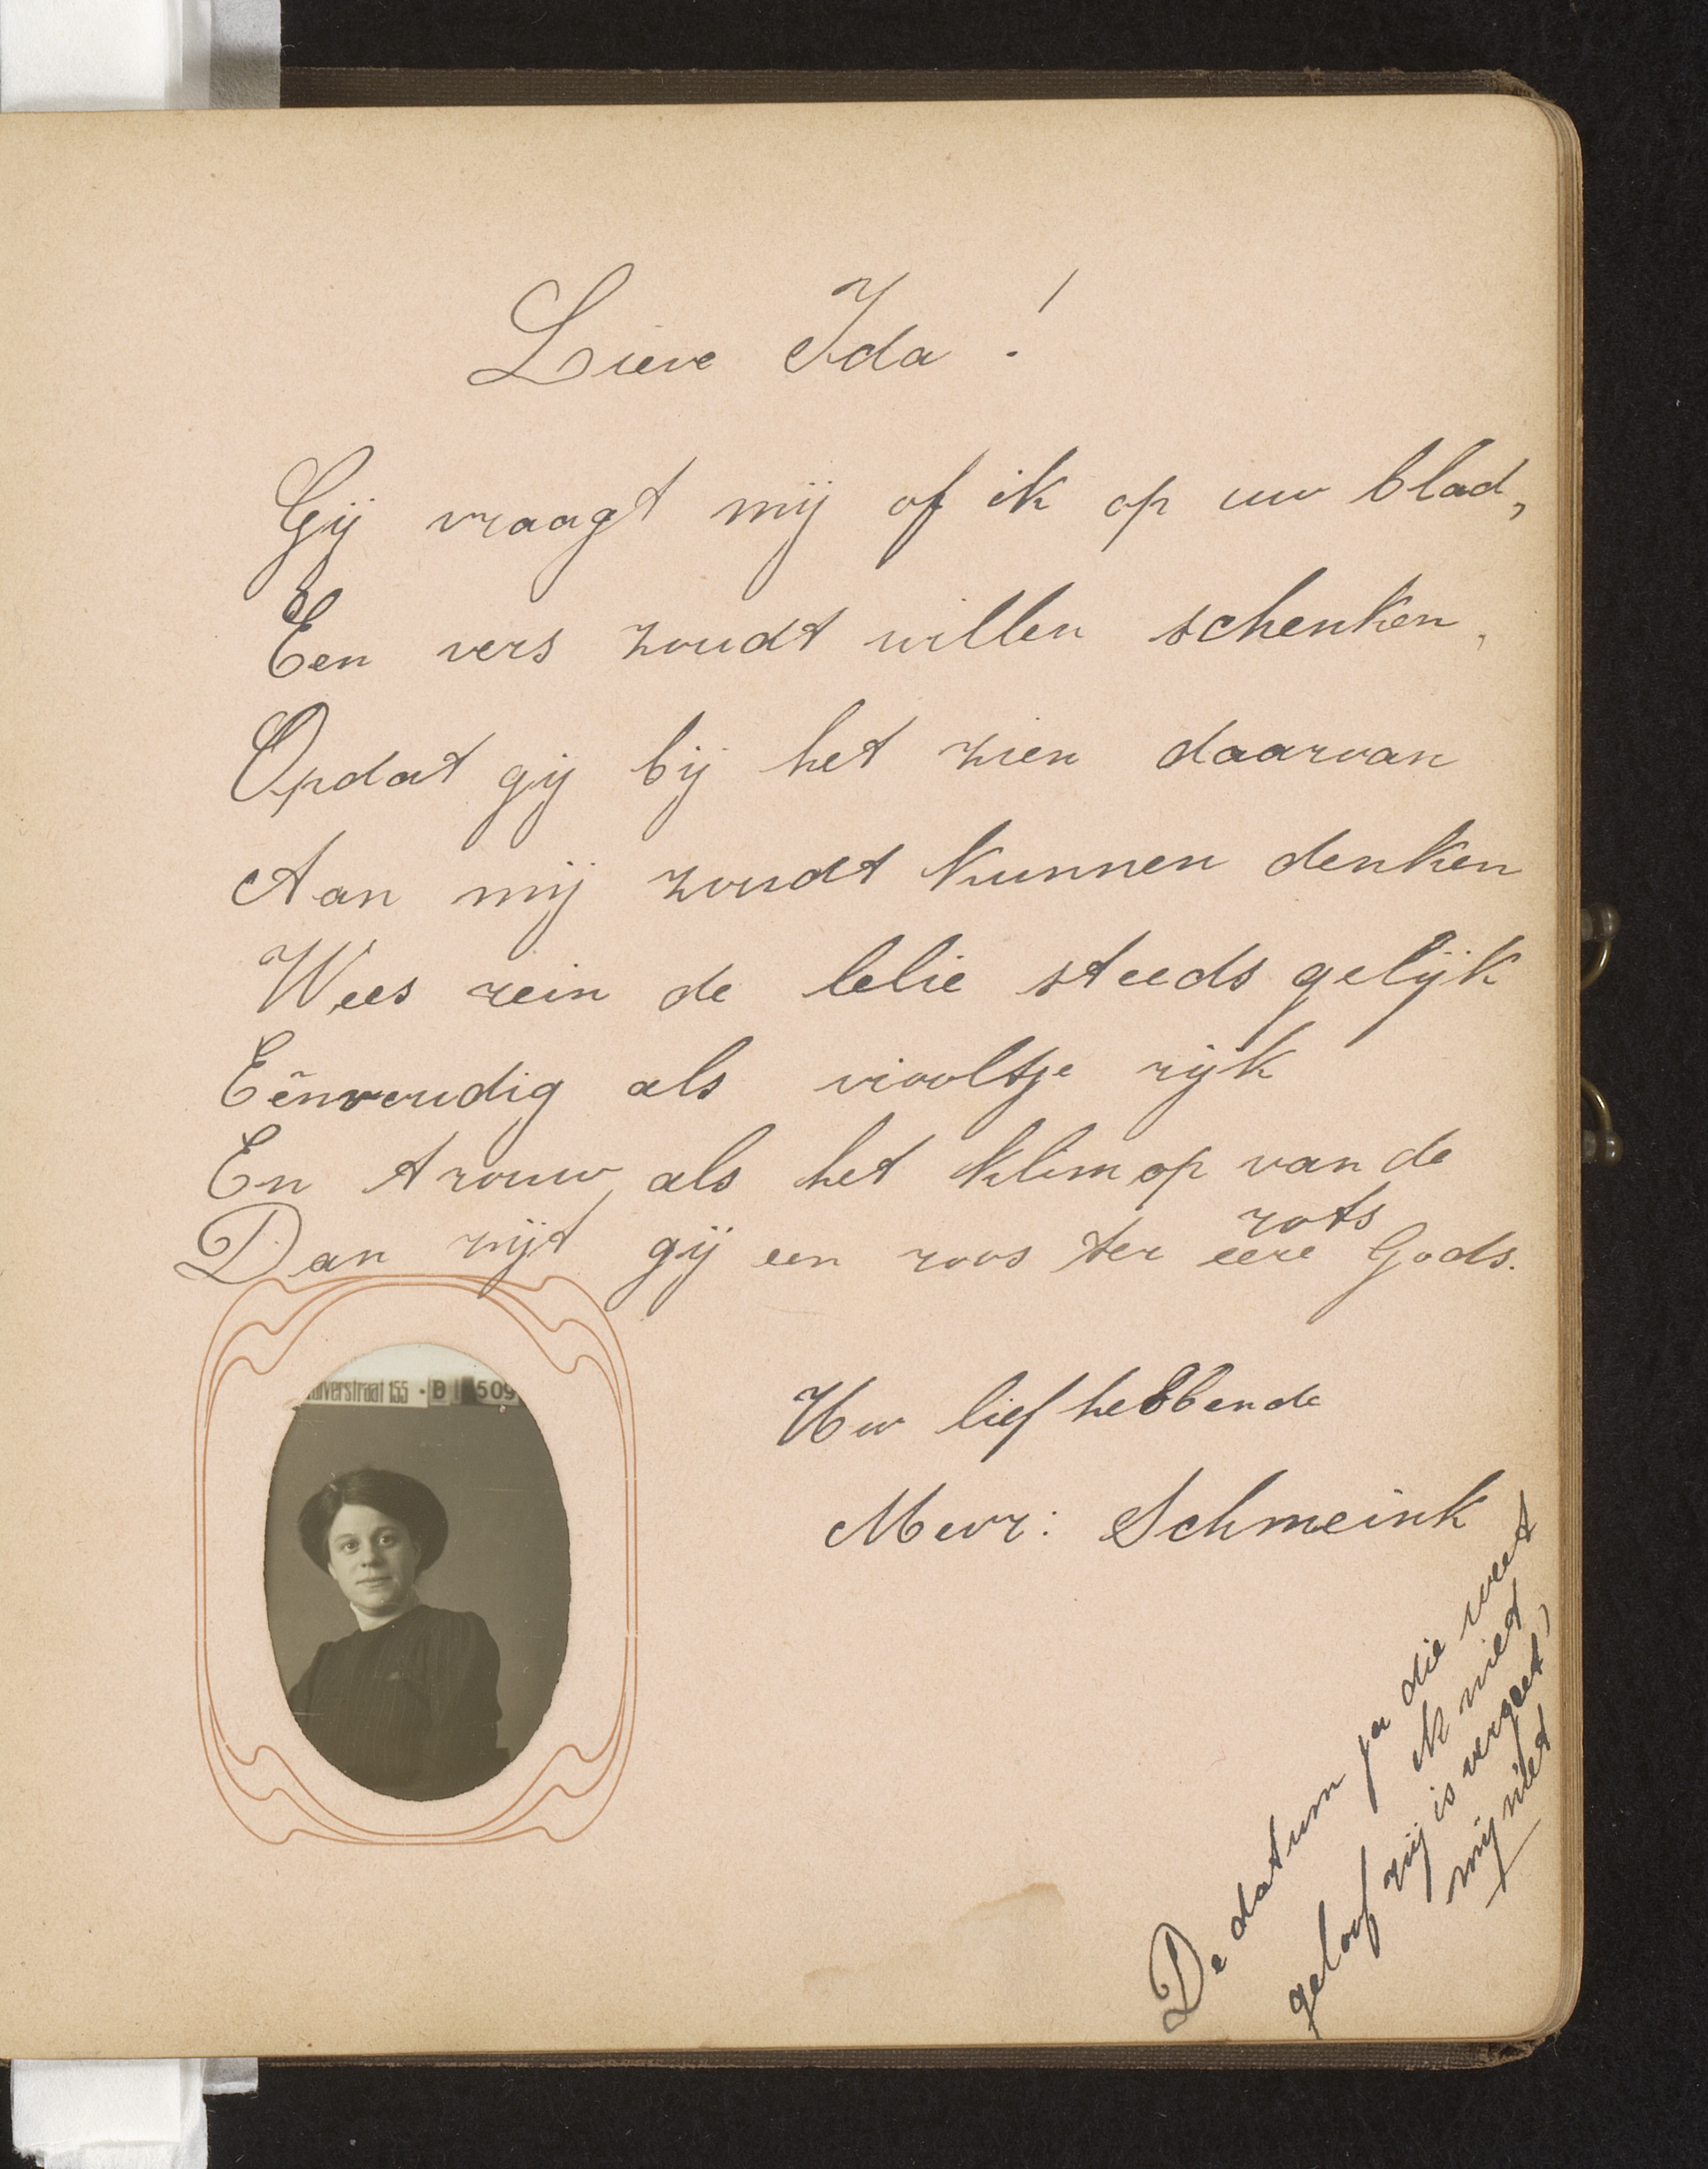 Lieve Ida !
Gij vraagt mij of ik op uw blad,
Een vers zoudt willen schenken,
Opdat gij bij het zien daarvan
Aan mij zoudt kunnen denken
Wees rein de lelie steeds gelijk
Eênvoudig als viooltje rijk
En trouw als het klimop van de
rots
Dan zijt gij een roos ter eere Gods.
Uw liefhebbende
Mevr: Schmeink
De datum ja die weet
ik niet
geloof mij is vergeet,
mij niet
verstraat 155 - D 509